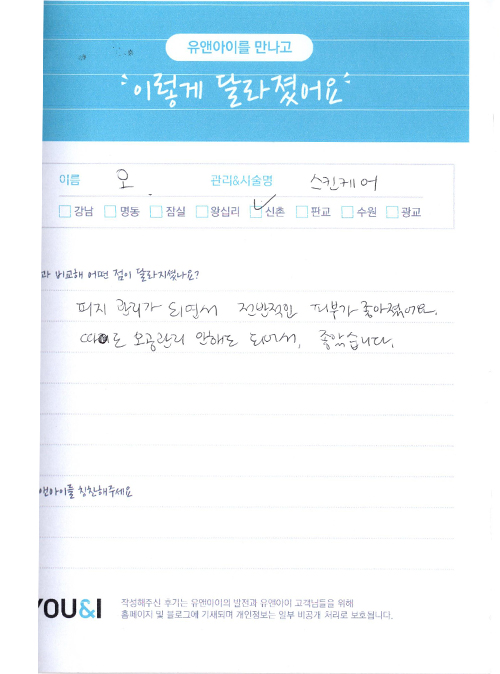 유앤아이를 만나고
이렇게 달라졌어요
이름 오 관리&시술명 스킨케어
강남 명동 잠실 왕십리 신촌 판교 수원 광교
과 비교해 어떤 점이 달라지셨나요?
피지 관리가 되면서 전반적인 피부가 좋아졌어요.
따로 모공관리 안해도 되어서, 좋았습니다.
앤아이를 칭찬해주세요
YOU&I
작성해주신 후기는 유앤아이의 발전과 유앤아이 고객님들을 위해
홈페이지 및 블로그에 기재되며 개인정보는 일부 비공개 처리로 보호됩니다.